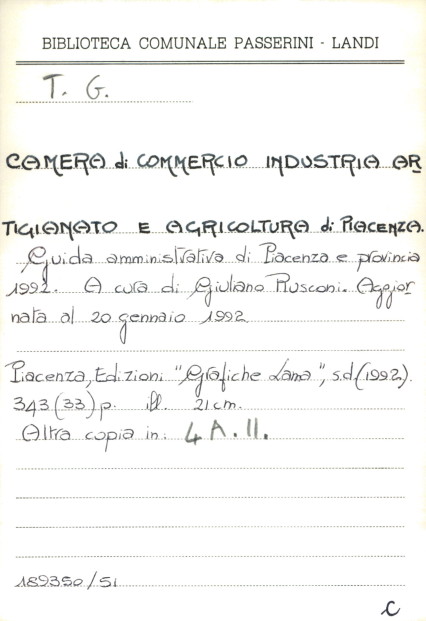 BIBLIOTECA COMUNALE PASSERINI - LANDI
T. G.
CAMERA di COMMERCIO INDUSTRIA AR
TIGIANATO E AGRICOLTURA di PIACENZA.
Guida amministrativa di Piacenza e provincia
1992. A cura di Giuliano Rusconi. Aggior
nata al 20 gennaio 1992
Piacenza, Edizioni "Grafiche Lama", s.d. (1992).
343 (33) p. ill. 21 cm.
Altra copia in: 4 A. II.
189350/51
C